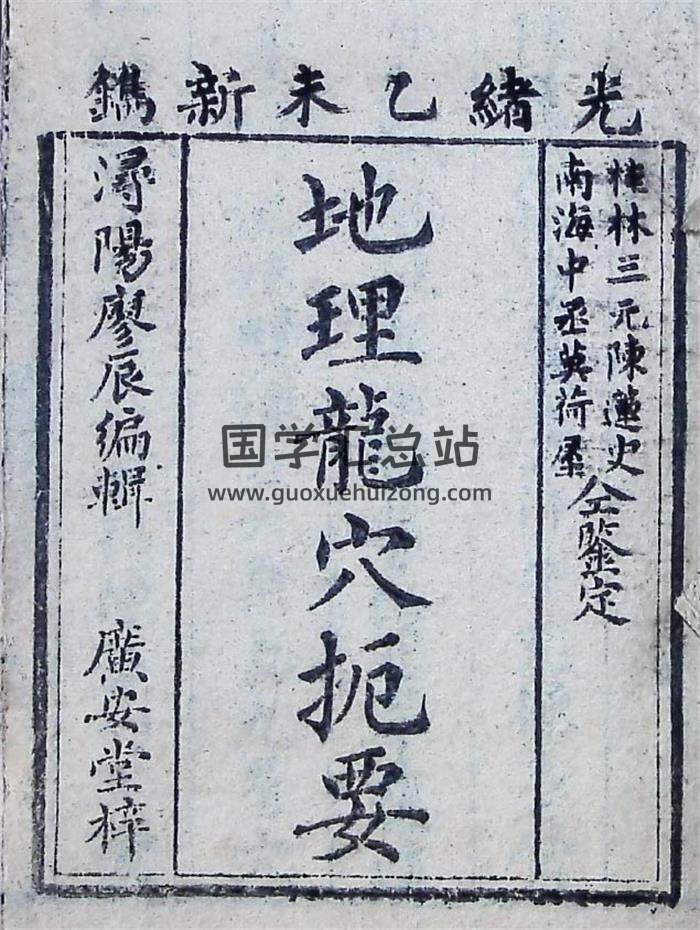 光緒乙未新鐫
桂林三元陳蓮史
南海中丞吳荷屋
仝鑒定
地理龍穴扼要
潯陽廖辰編輯
廣安堂梓
国学汇总站
www.guoxuehuizong.com